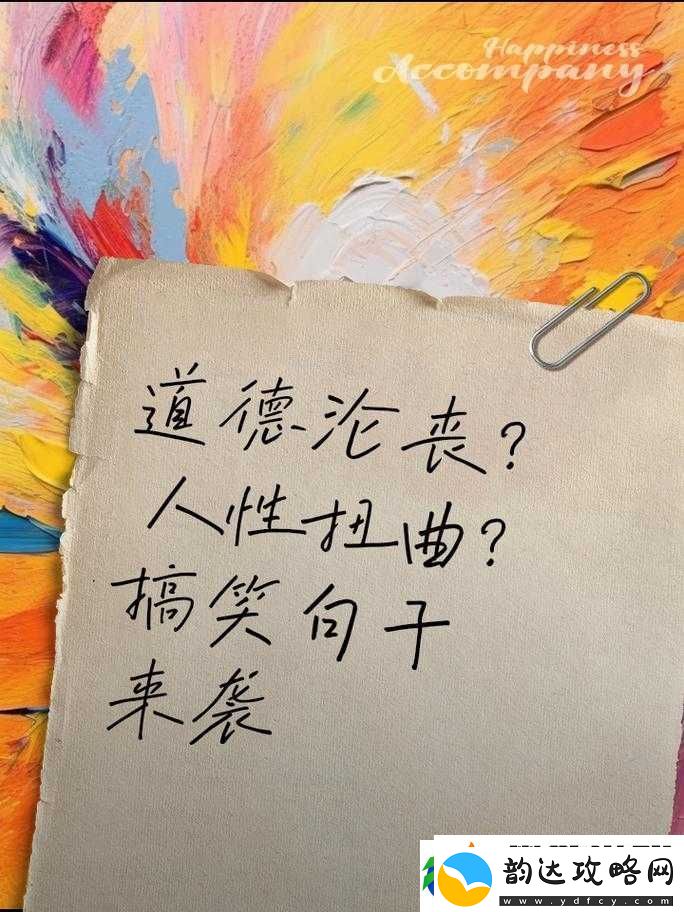 Happiness
Accompany
道德沦丧?
人性扭曲?
搞笑句子
来袭
韵达攻略网
www.ydfcy.com